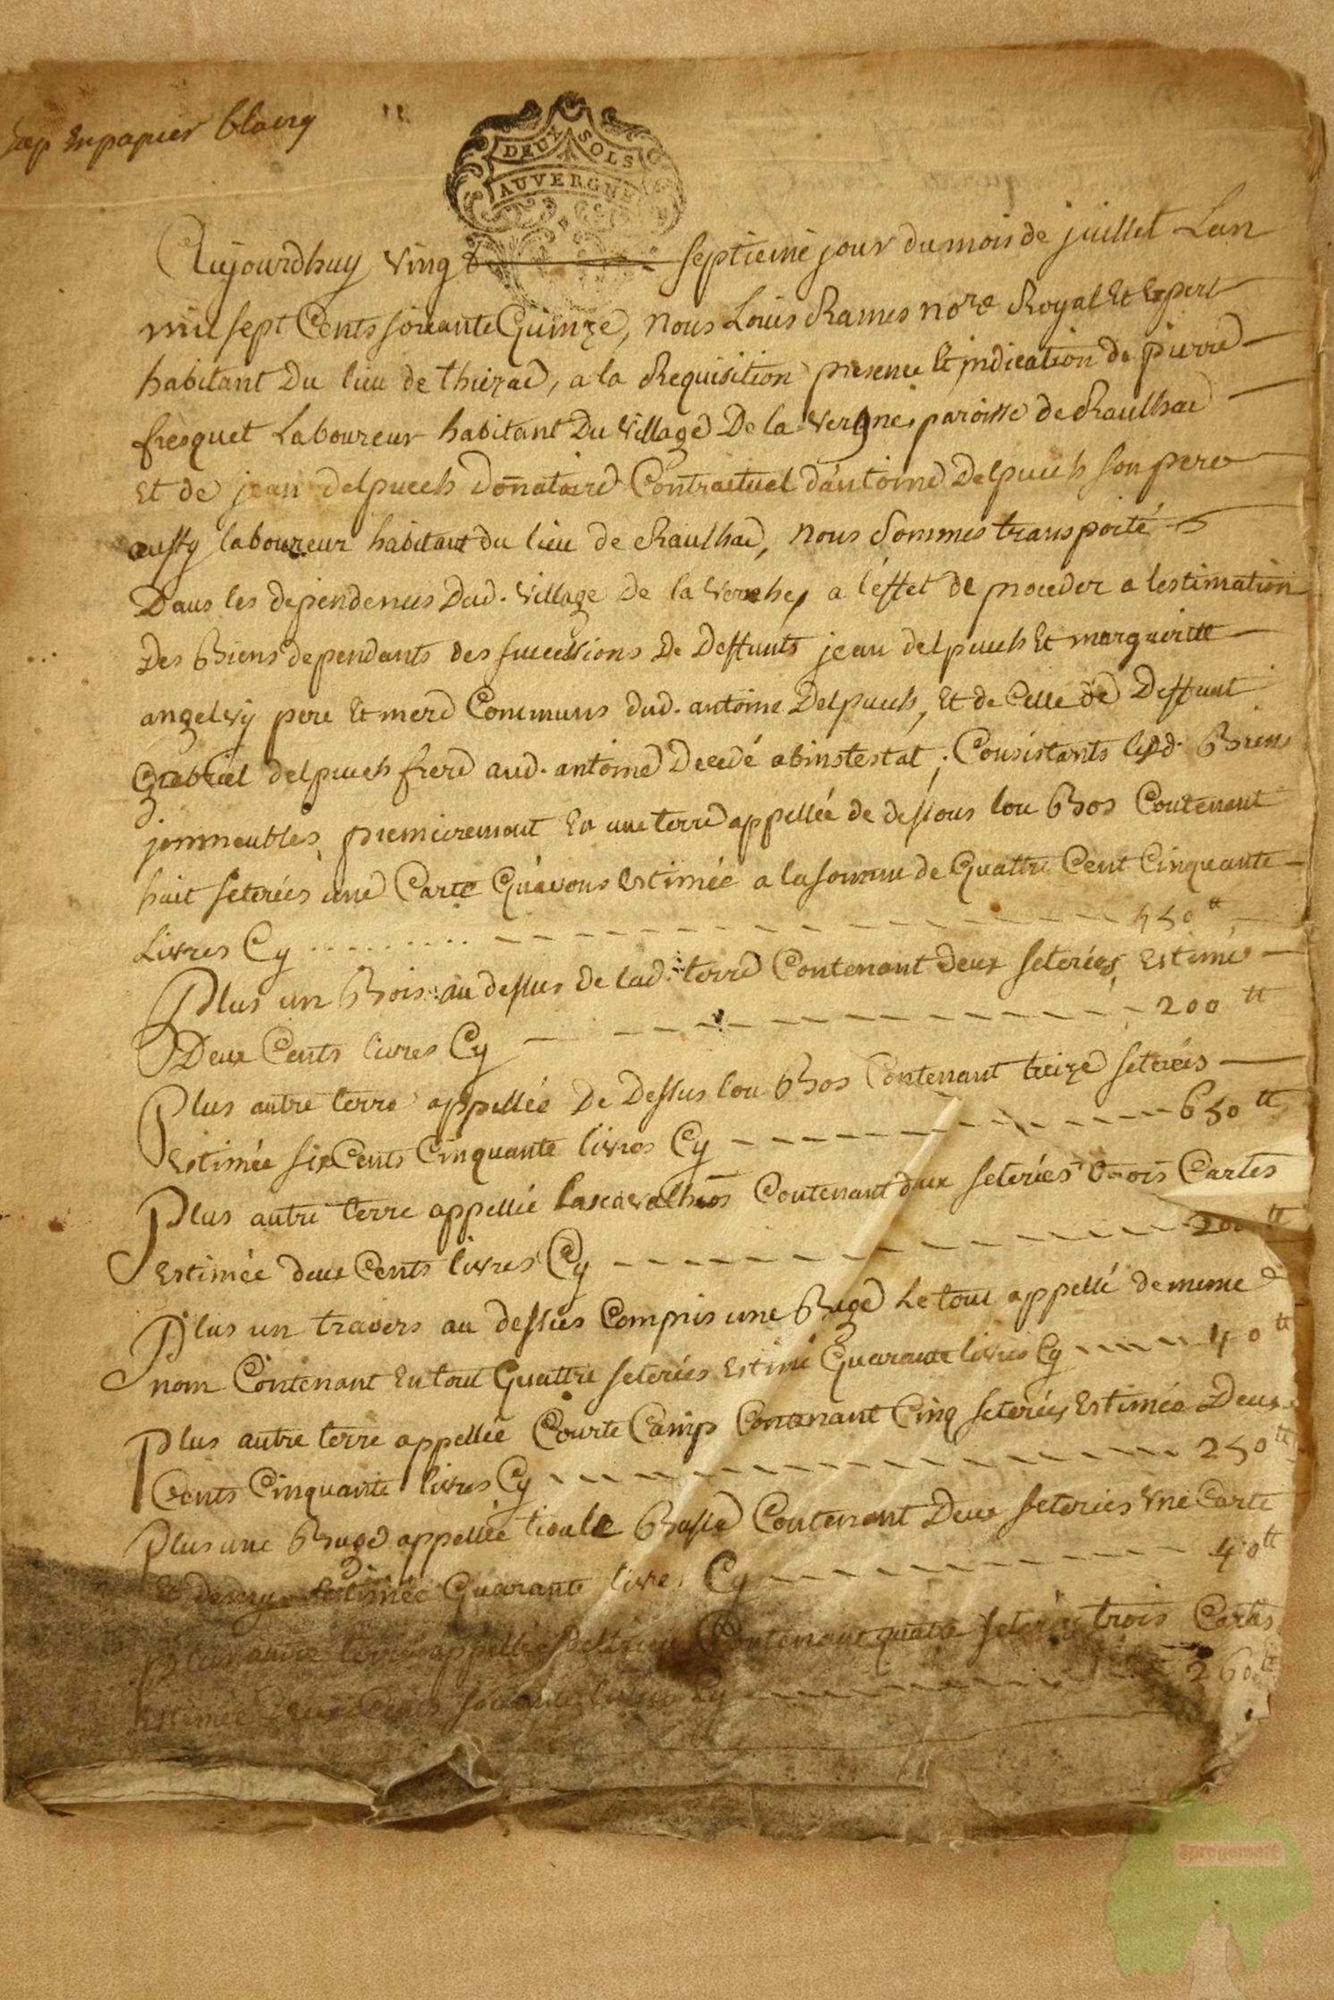 Exp en papier blanq
DEUX SOLS
AUVERGNE
Aujourdhuy vingt septieme jour du mois de juillet Lan
mil sept Cents soixante Quinze, nous Louis Rames nore Royal Et Expert
habitant Du lieu de thiezac, a la Requisition presence Et jndication de pierre
fresquet Laboureur habitant Du village De la Vergne, paroisse de Raulhac
Et de jean delpuech Donataire Contractuel d'antoine Delpuech son pere
aussy laboureur habitant du lieu de Raulhac, nous sommes transporté
Dans les dependences Dud. village de la Vernhe, a l'effet de proceder a lestimation
Des Biens dependants des successions De Deffunts jean delpuech Et marguerite
angelvy pere Et mere Communs dud. antoine Delpuech, Et de Celle de Deffunt
Gabriel delpuech frere aud. antoine Decedé abinstestat; Consistants lesd. Biens
jmmeubles, premierement En une terre appellée de dessous lou Bos Contenant
huit seterées une Carte Qu'avons Estimée a la somme de Quattre Cent Cinquante
Livres Cy 450tt
Plus un Bois au dessus de lad. terre Contenant deux seterées, Estimé
Deux Cents livres Cy 200tt
Plus autre terre appellée De Dessus lou Bos Contenant treize seterées
Estimée six Cents Cinquante livres Cy 650tt
Plus autre terre appellée Contenant deux seterées trois Cartes
Estimée deux Cents livres Cy 200tt
Plus un travers au dessus Compris une Buge Le tout appellé de meme
nom Contenant En tout Quattre seterées Estimé Quarante livres Cy 40tt
Plus autre terre appellée Courte Camp Contenant Cinq seterées Estimée Deux
Cents Cinquante livres Cy 250tt
Plus une Buge appellée Basse Contenant Deux seterées Une Carte
Et demy Estimée Quarante livres Cy 40tt
Plus autre terre appellée Contenant quatre seterées trois Cartes
Estimée Deux Cents soixante livres Cy 260tt
aprogemere